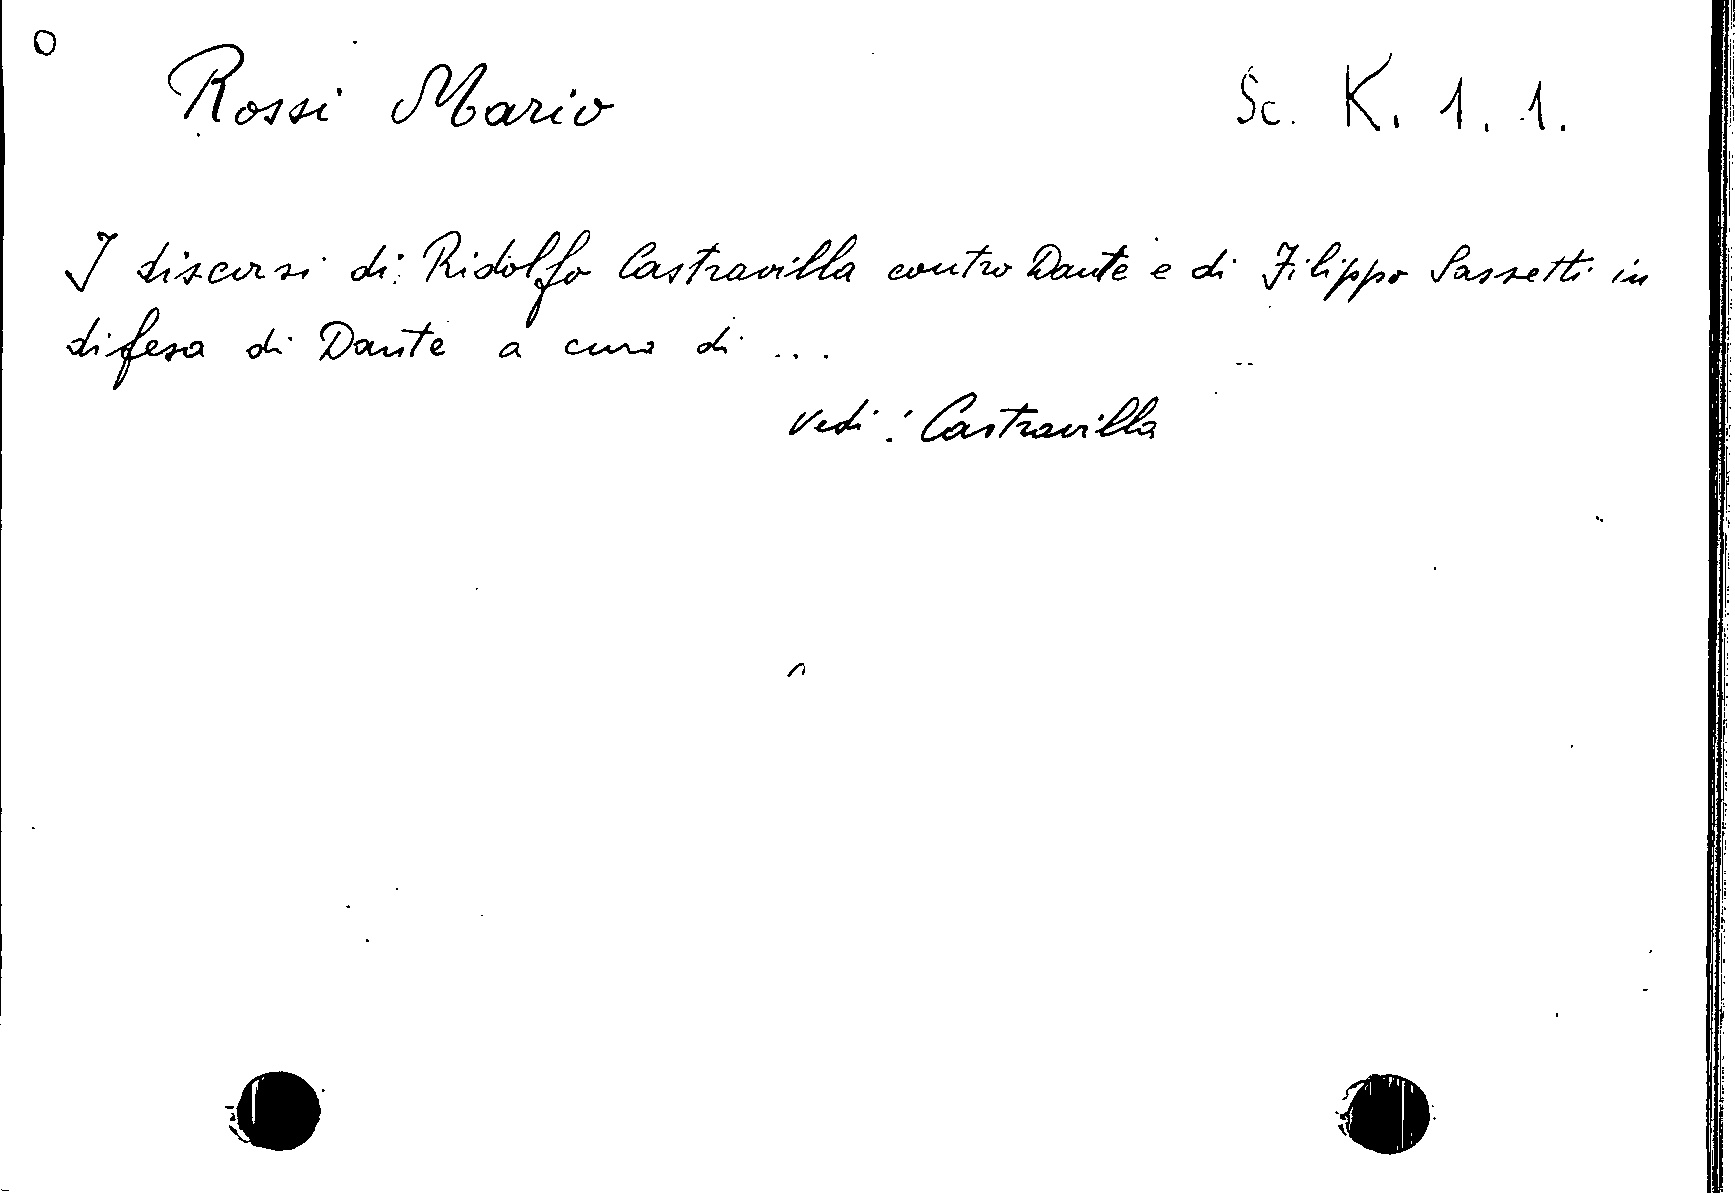 Rossi Mario Sc. K. 1. 1.
I discorsi di Ridolfo Castravilla contro Dante e di Filippo Sassetti in
difesa di Dante a cura di ...
vedi: Castravilla